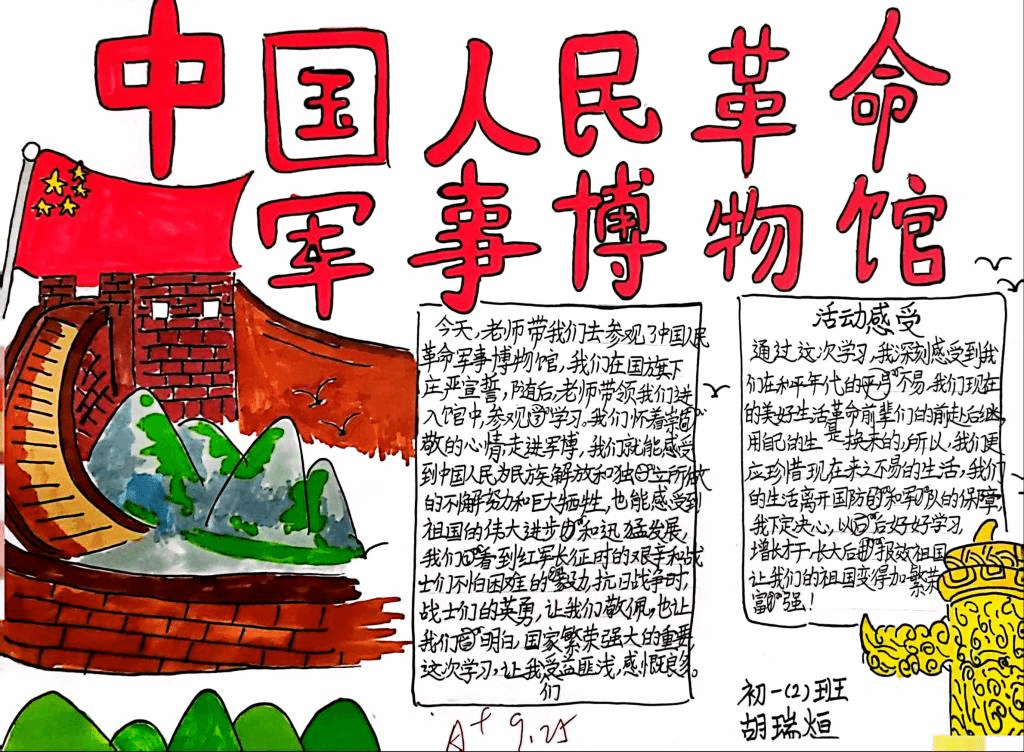 中国人民革命
军事博物馆
今天,老师带我们去参观了中国人民
革命军事博物馆,我们在国旗下
庄严宣誓,随后,老师带领我们进
入馆中,参观学习。我们怀着崇
敬的心情走进军博,我们就能感受
到中国人民为民族解放和独立所做
的不懈努力和巨大牺牲,也能感受到
祖国的伟大进步和迅猛发展,
我们看到红军长征时的艰辛和战
士们不怕困难的毅力,抗日战争时,
战士们的英勇,让我们敬佩,也让
我们明白,国家繁荣强大的重要,
这次学习,让我受益匪浅,感慨良多。
们
活动感受
通过这次学习,我深刻感受到我
们在和平年代的不易,我们现在
的美好生活革命前辈们的前赴后继
用自己的生是换来的,所以,我们更
应珍惜现在来之不易的生活,我们
的生活离开国防和军队的保障,
我下定决心,以后好好学习,
增长才干,长大后报效祖国
让我们的祖国变得加繁荣
富强!
初一(2)班
胡瑞烜
A+ 9.25